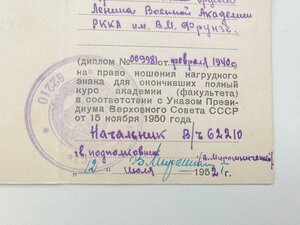 Ленина Военной Академии
РККА им. В.М. Фрунзе.
(диплом № 009981 от февраля 1940 г
на право ношения нагрудного
знака для окончивших полный
курс академии (факультета)
в соответствии с Указом Прези-
диума Верховного Совета СССР
от 15 ноября 1950 года.
Начальник В/ч 62210
гв. подполковник
"12" июля 1952 г.
62210